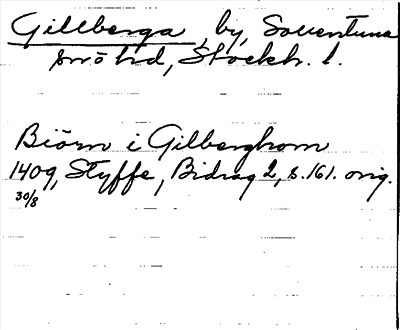 Gillberga, by, Sollentuna
snöhd, Stockh. l.
Biörn i Gilberghom
1409, Styffe, Bidrag 2, s. 161. orig.
30/8